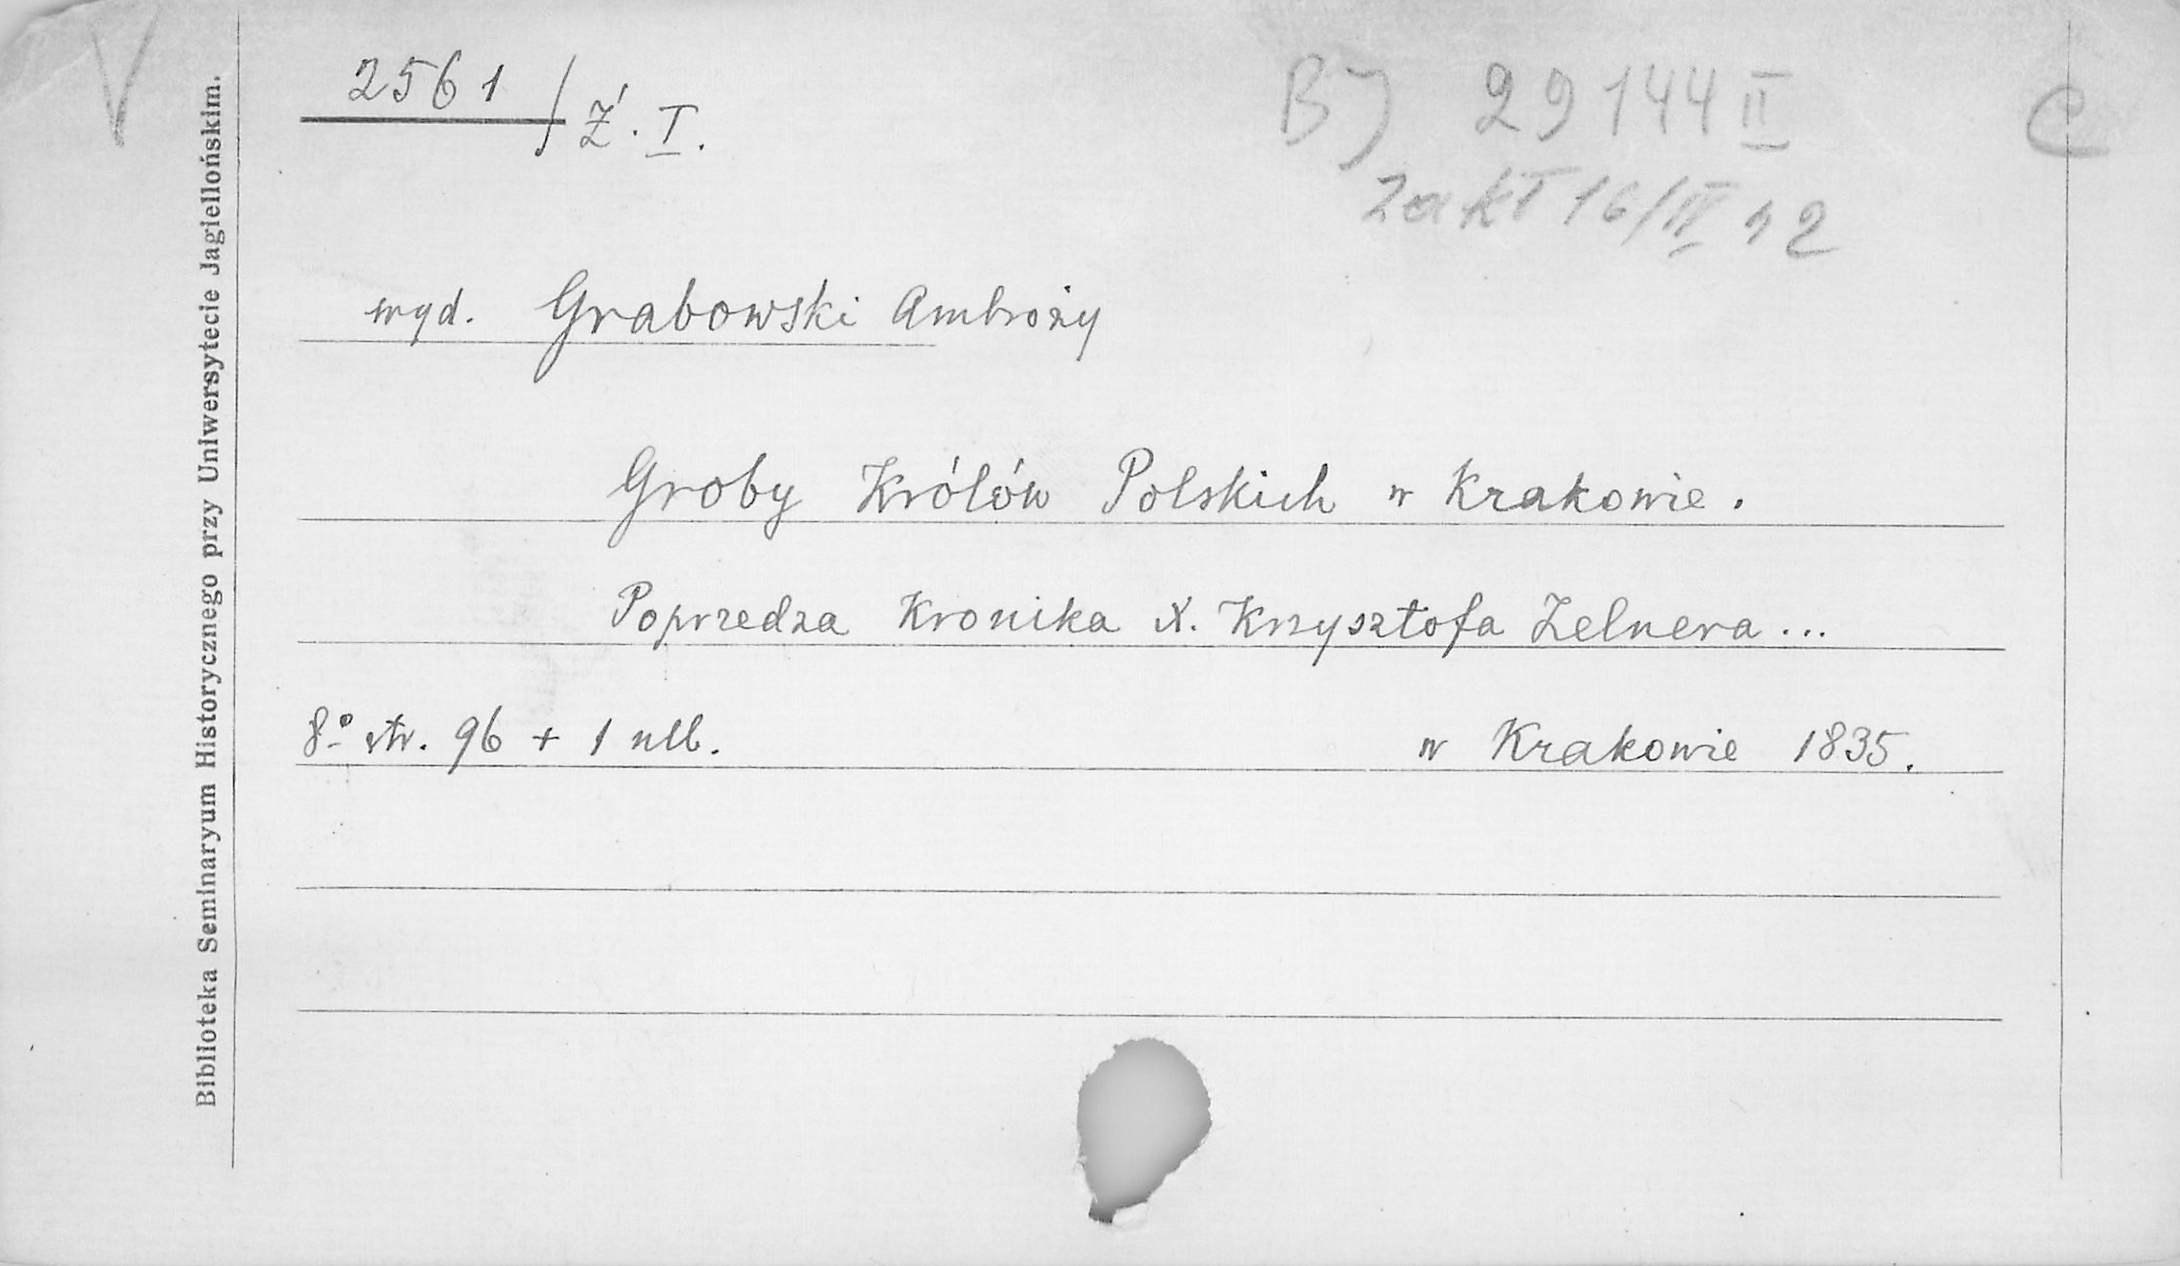 V
2561 / Ź. I.
BJ 29144 II
C
zakł 16/II 42
wyd. Grabowski Ambroży
Groby Królów Polskich w Krakowie.
Poprzedza Kronika X. Krzysztofa Zelnera...
8° str. 96 + 1 nlb. w Krakowie 1835.
Biblioteka Seminaryum Historycznego przy Uniwersytecie Jagiellońskim.